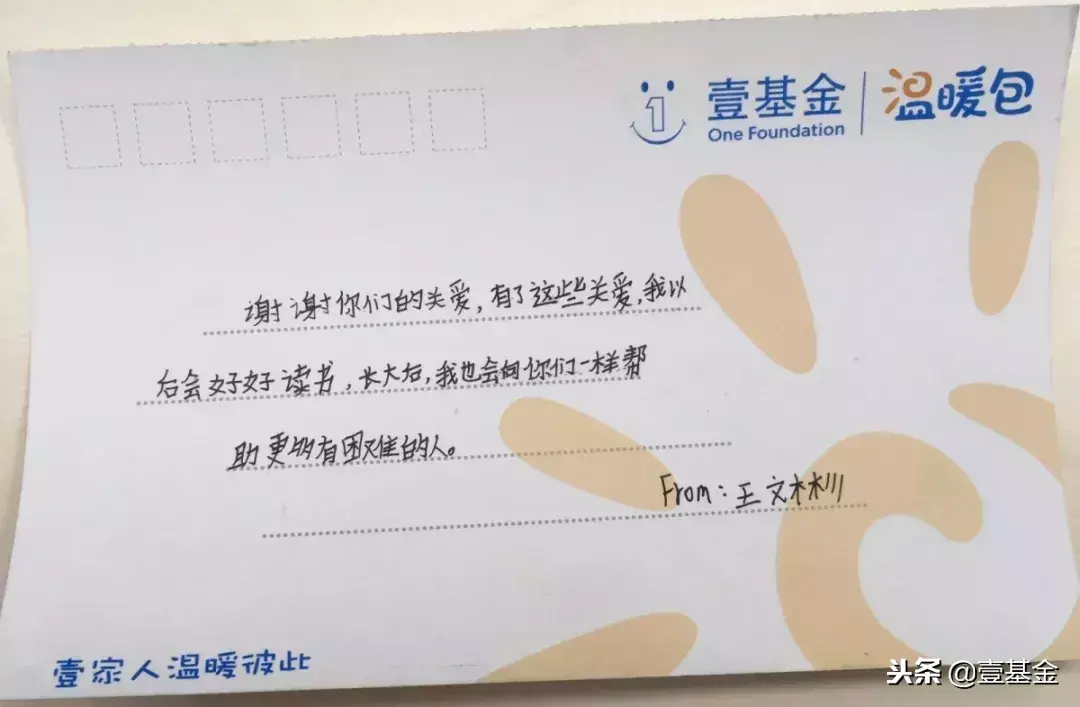 壹基金
One Foundation
温暖包
谢谢你们的关爱，有了这些关爱，我以
后会好好读书，长大后，我也会向你们一样帮
助更多有困难的人。
From：王文彬
壹家人温暖彼此
头条 @壹基金